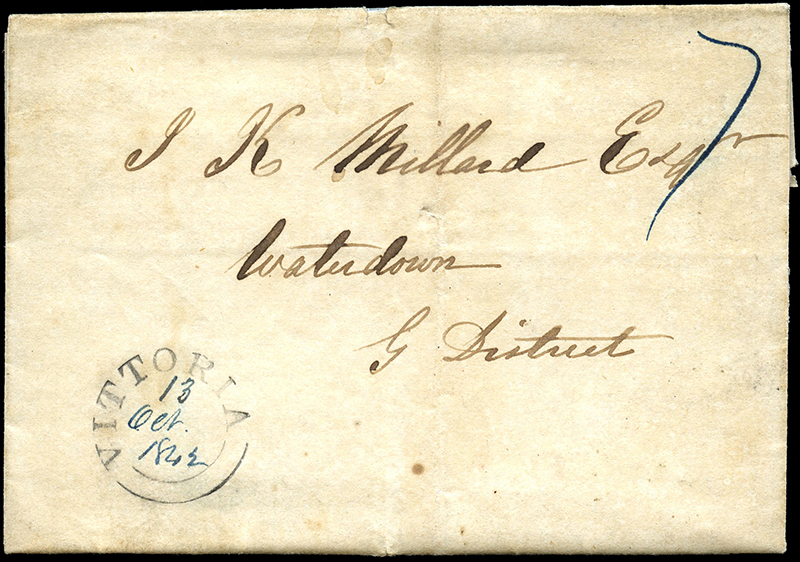 7
J K Millard Esqr
Waterdown
G District
VITTORIA
13
Oct.
1842